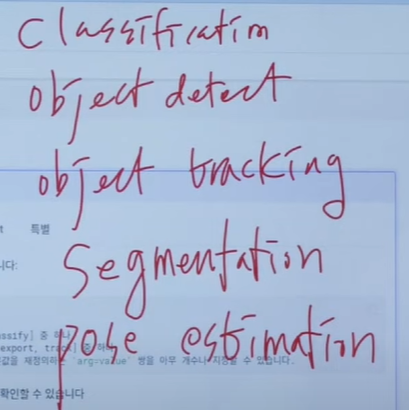 Classification
object detect
object tracking
특별
니다:
Segmentation
assify] 중 하나
pose estimation
export, track] 중 하
값을 재정의하는 'arg=value' 쌍을 아무 개수나 지정할 수 있습니다.
확인할 수 있습니다